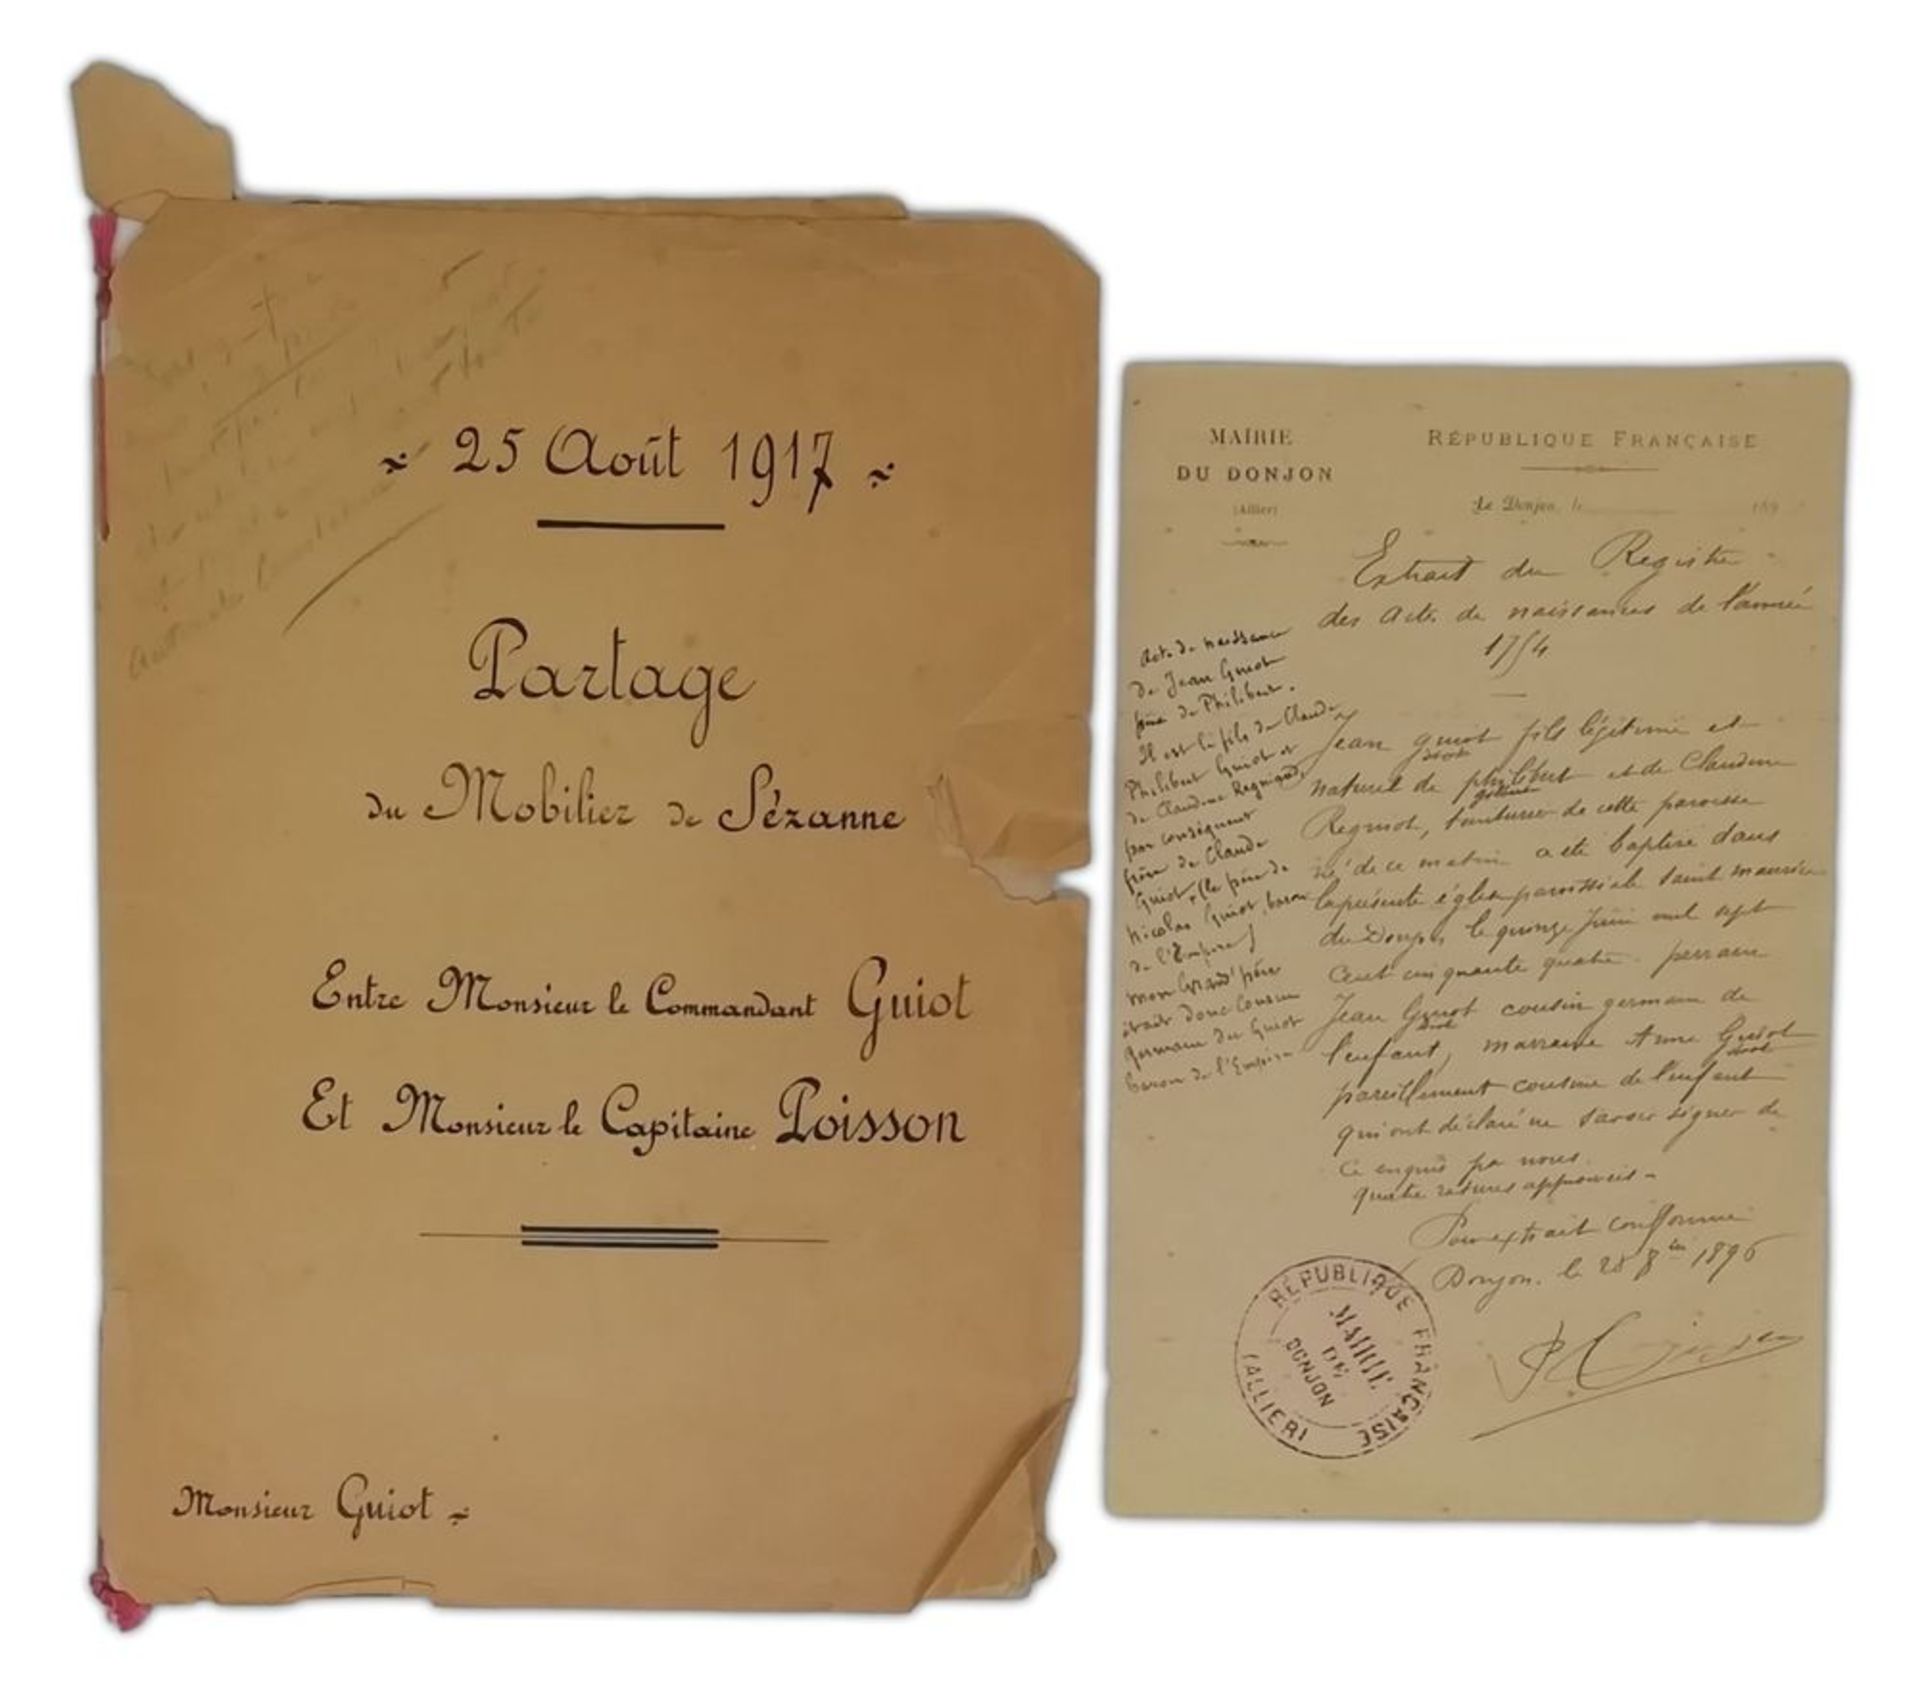 25 Août 1917
Partage
du Mobilier de Sézanne
Entre Monsieur le Commandant Guiot
Et Monsieur le Capitaine Poisson
Monsieur Guiot
MAIRIE
DU DONJON
(Allier)
RÉPUBLIQUE FRANÇAISE
Le Donjon, le 189
Extrait du Registre
des actes de naissances de l'année
1754
Jean guiot fils légitime et
diot
naturel de philibert et de Claudine
Regniot, de cette paroisse
né de ce matin a eté baptisé dans
la présente église paroissiale saint maurice
du Donjon le quinze juin mil sept
cent cinquante quatre. parrain
Jean Guiot cousin germain de
diot
l'enfant, marraine Anne Guiot
diot
pareillement cousine de l'enfant
qui ont déclaré ne savoir signer de
ce enquis par nous.
quatre ratures approuvées
Pour extrait conforme
Donjon, le 28 8bre 1896
acte de naissance
de Jean Guiot
père de Philibert.
Il est le fils de Claude
Philibert Guiot et
de Claudine Regniaud,
par conséquent
frère de Claude
Guiot, (le père de
Nicolas Guiot, baron
de l'Empire)
mon Grand'père
était donc cousin
germain du Guiot
baron de l'Empire
RÉPUBLIQUE FRANÇAISE
MAIRIE
DE
DONJON
(ALLIER)